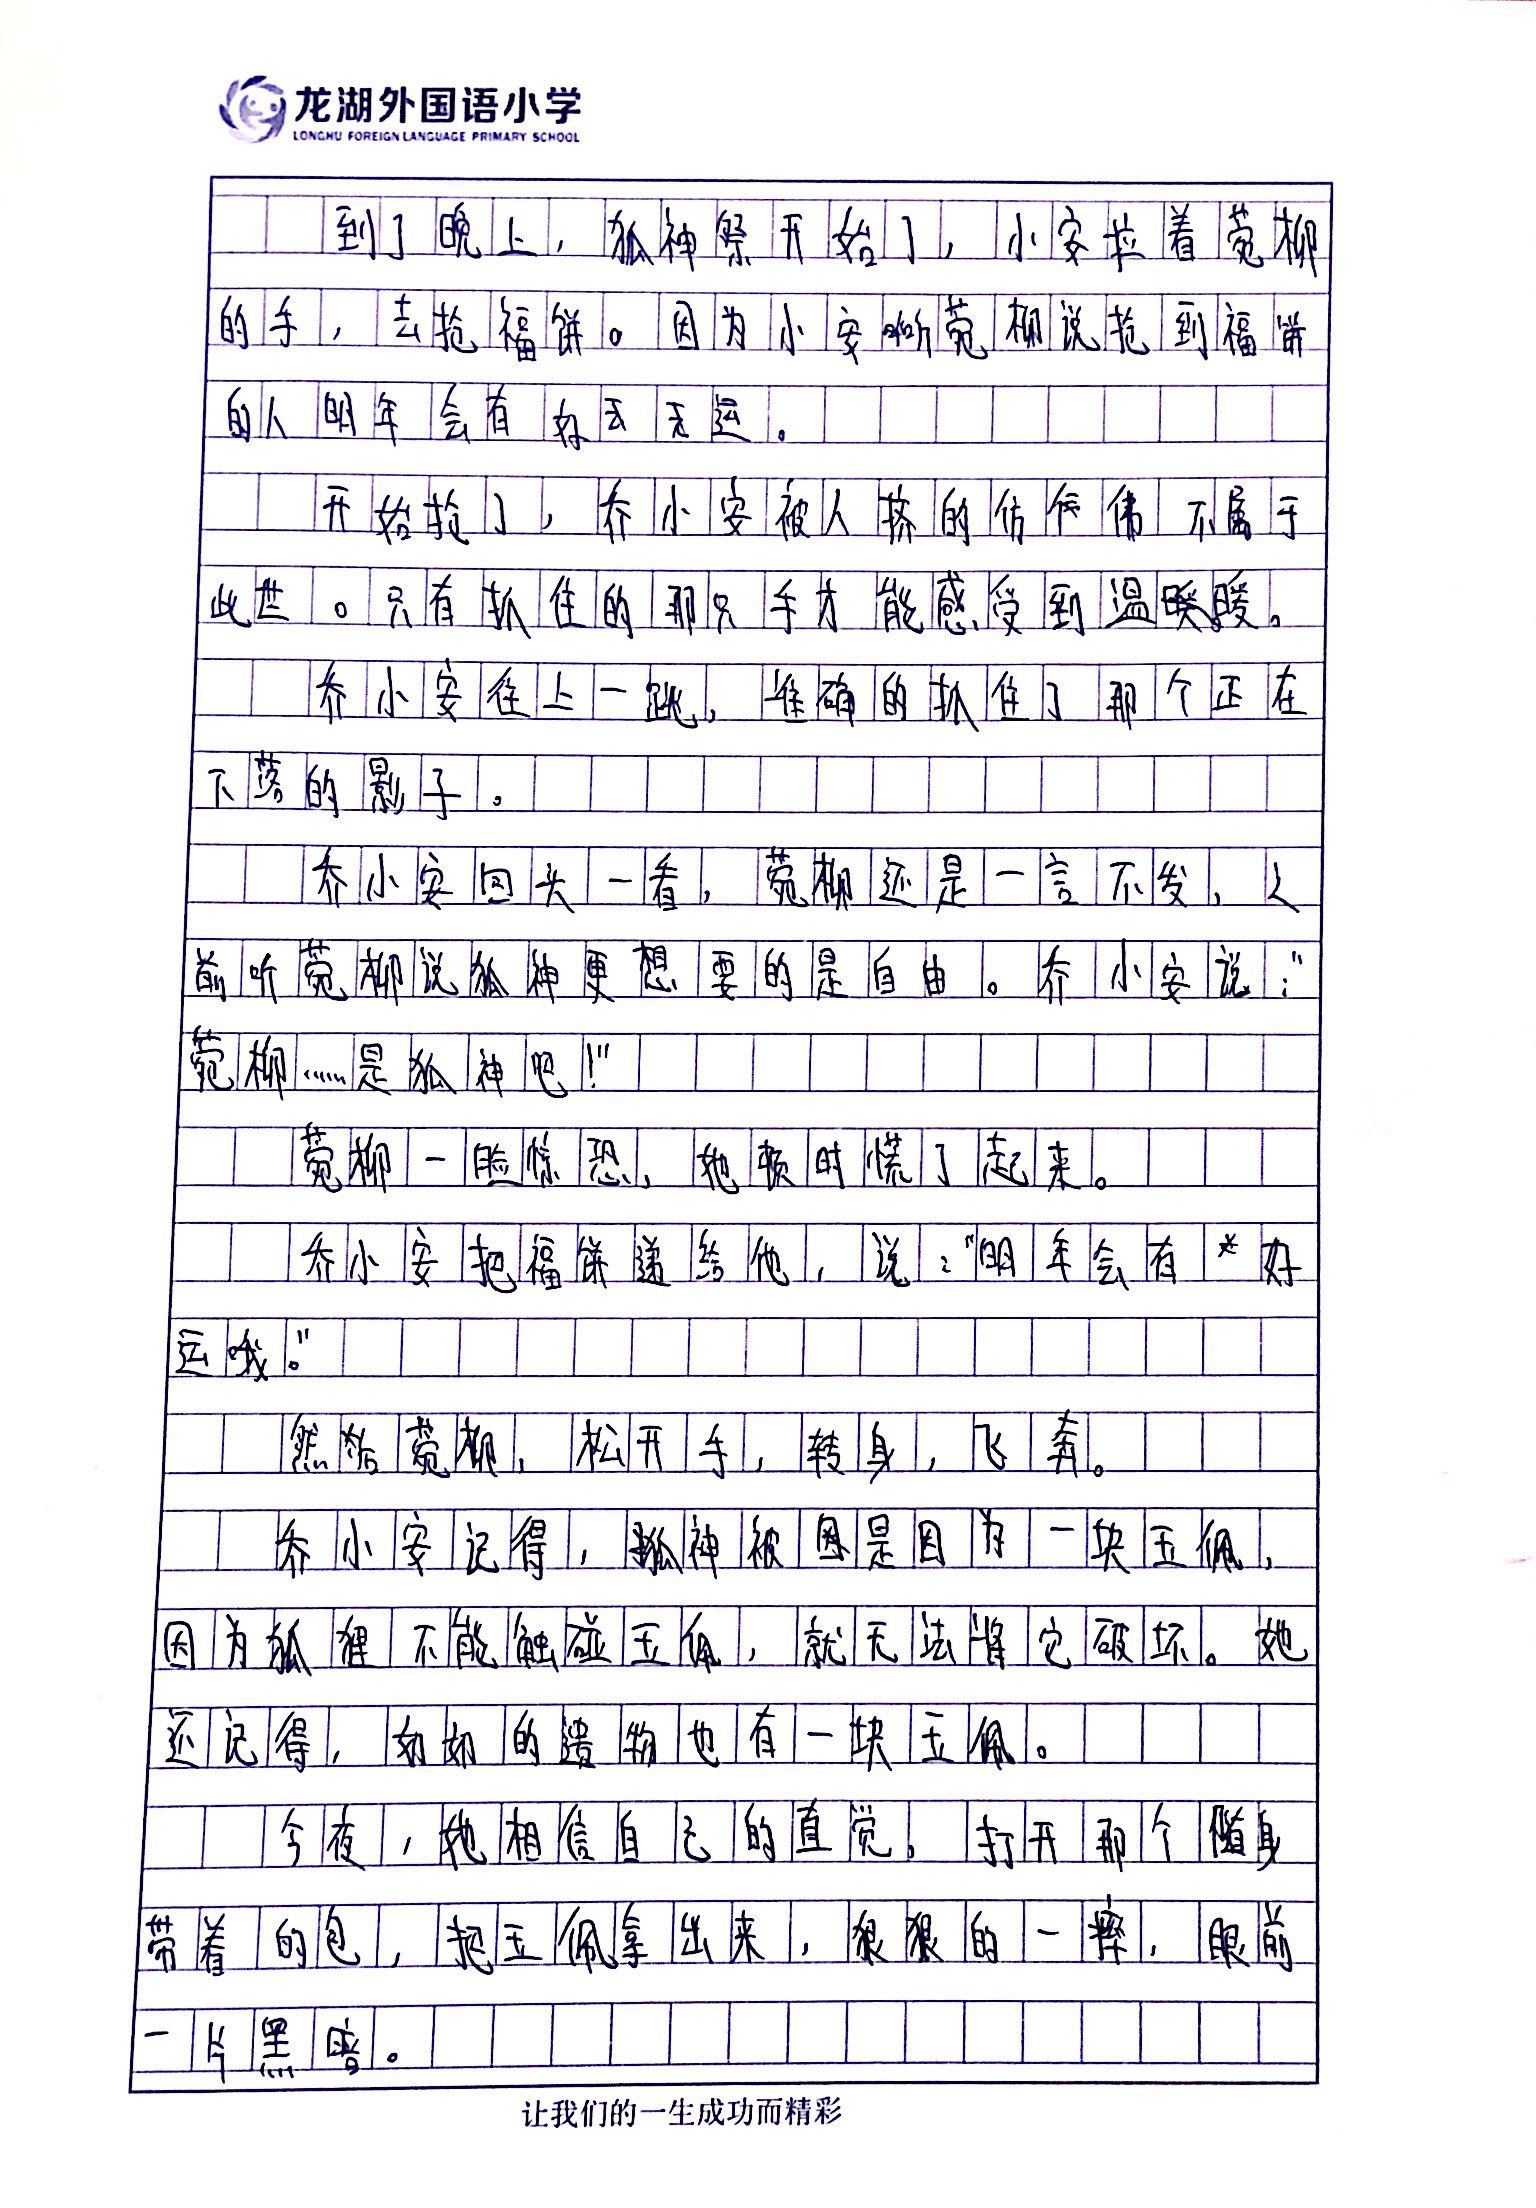 龙湖外国语小学
LONGHU FOREIGN LANGUAGE PRIMARY SCHOOL
到了晚上，狐神祭开始了，小安拉着菀柳
的手，去抢福饼。因为小安听菀柳说抢到福饼
的人明年会有好运。
开始抢了，乔小安被人挤的仿佛不属于
此世。只有抓住的那只手才能感受到温暖。
乔小安往上一跳，准确的抓住了那个正在
下落的影子。
乔小安回头一看，菀柳还是一言不发，之
前听菀柳说狐神更想要的是自由。乔小安说："
菀柳……是狐神吧！"
菀柳一脸惊恐，她顿时慌了起来。
乔小安把福饼递给他，说："明年会有好
运哦。"
然后菀柳，松开手，转身，飞奔。
乔小安记得，狐神被困是因为一块玉佩，
因为狐狸不能触碰玉佩，就无法将它破坏。她
还记得，奶奶的遗物也有一块玉佩。
今夜，她相信自己的直觉。打开那个随身
带着的包，把玉佩拿出来，狠狠的一摔，眼前
一片黑暗。
让我们的一生成功而精彩